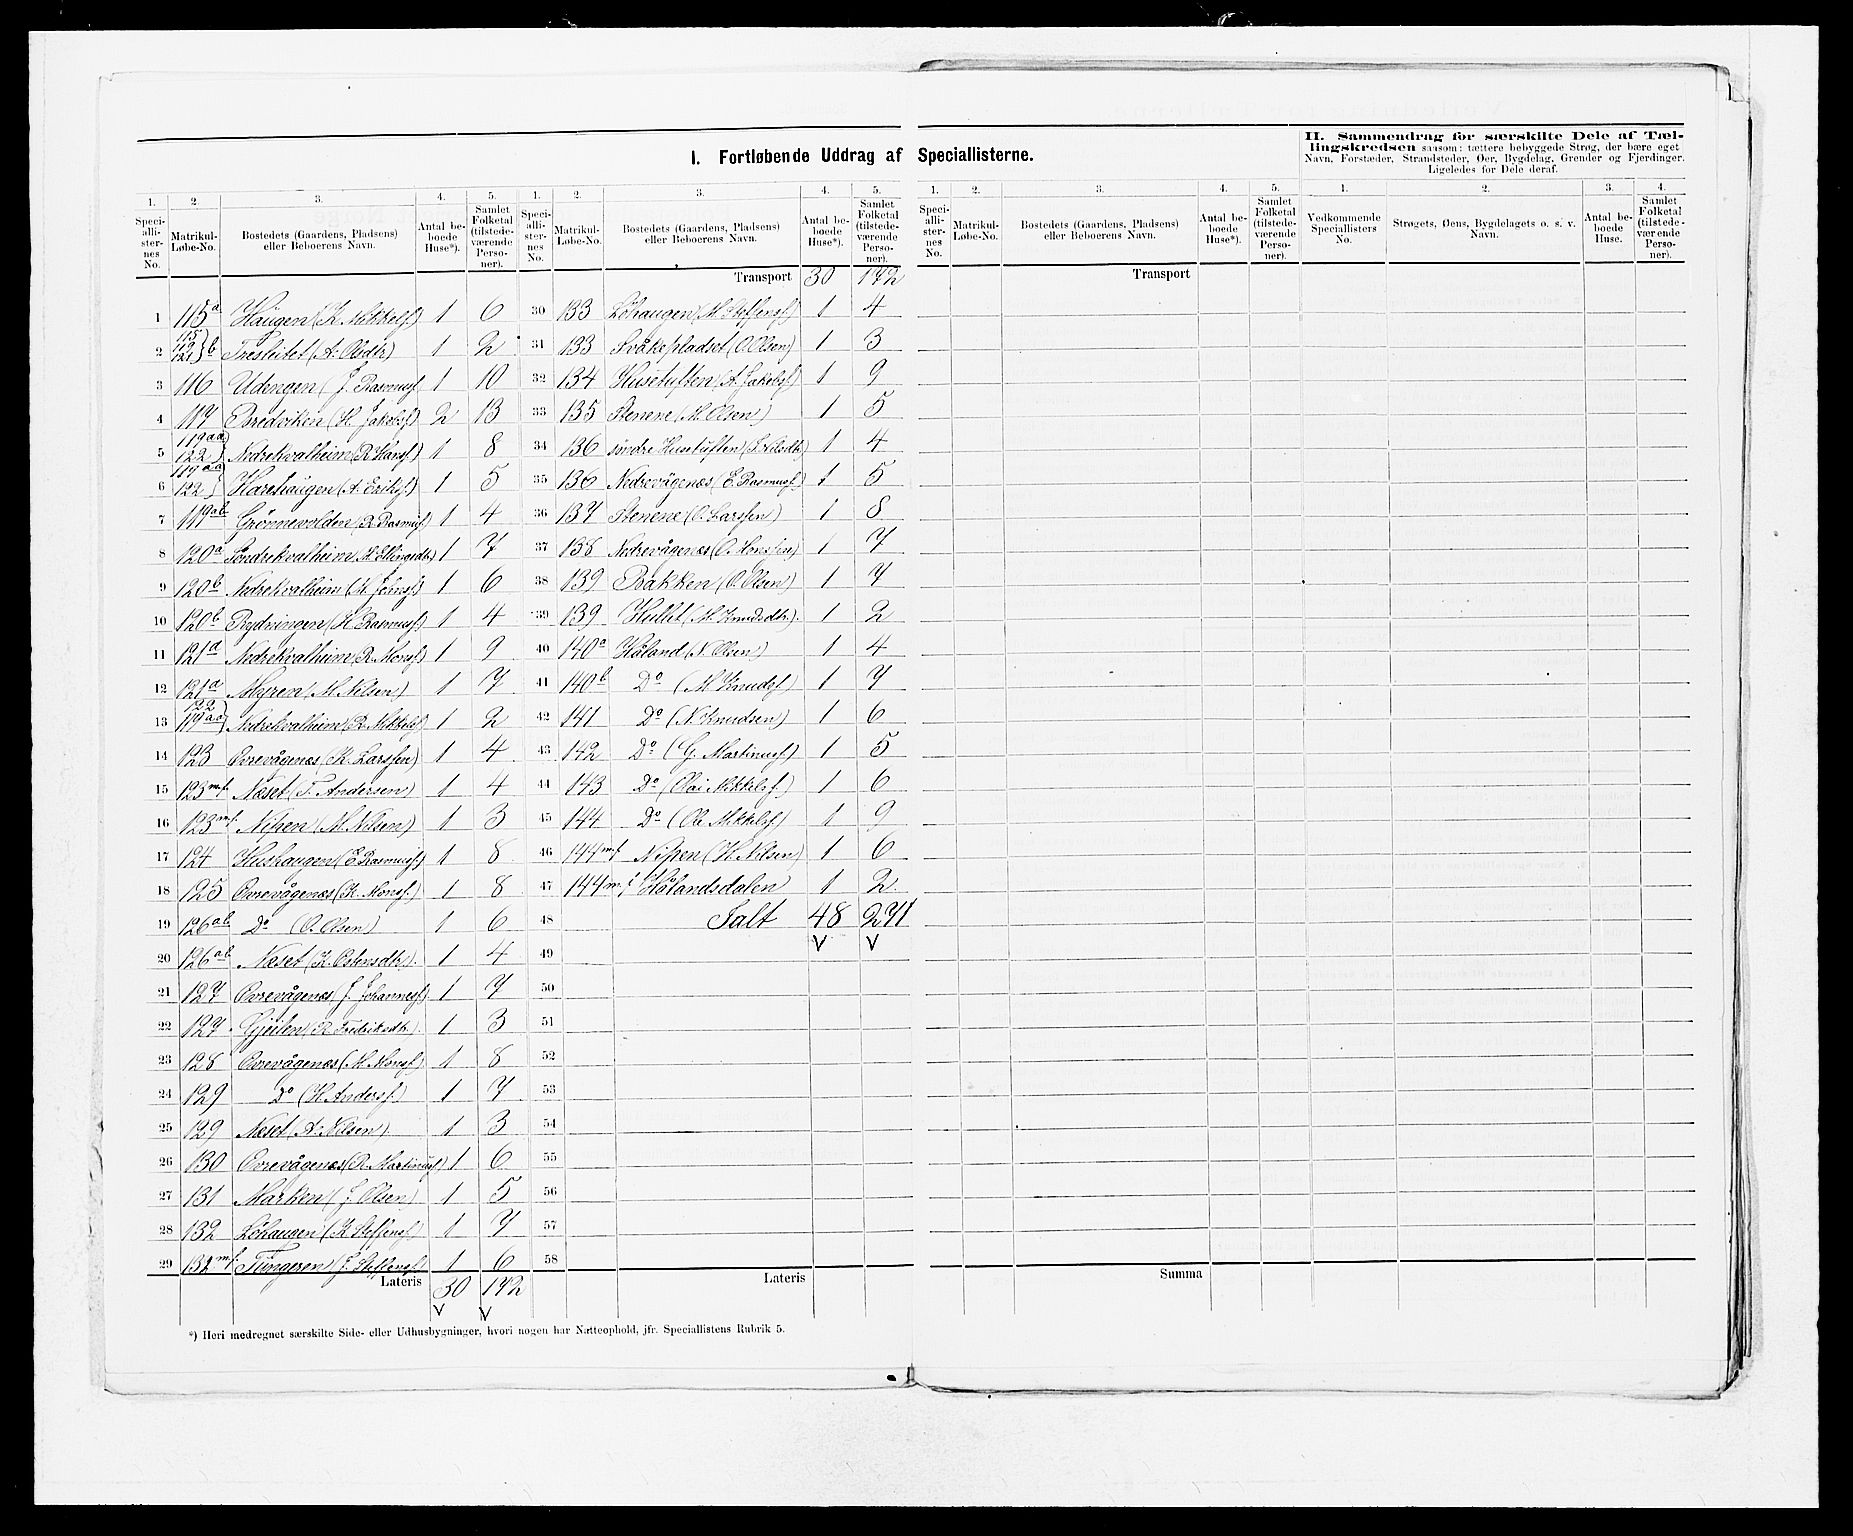 I. Fortløbende Uddrag af Speciallisterne.
II. Sammendrag for særskilte Dele af Tællingskredsen saasom: tættere bebyggede Strøg, der bære eget
Navn, Forstæder, Strandsteder, Øer, Bygdelag, Grender og Fjerdinger.
Ligeledes for Dele deraf.
1. 2. 3. 4. 5. 1. 2. 3. 4. 5. 1. 2. 3. 4. 5. 1. 2. 3. 4.
Speciallisternes No. Matrikul-Løbe-No. Bostedets (Gaardens, Pladsens) eller Beboerens Navn. Antal beboede Huse*). Samlet Folketal (tilstedeværende Personer).
Speciallisternes No. Matrikul-Løbe-No. Bostedets (Gaardens, Pladsens) eller Beboerens Navn. Antal beboede Huse*). Samlet Folketal (tilstedeværende Personer).
Speciallisternes No. Matrikul-Løbe-No. Bostedets (Gaardens, Pladsens) eller Beboerens Navn. Antal beboede Huse*). Samlet Folketal (tilstedeværende Personer).
Vedkommende Speciallisters No. Strøgets, Øens, Bygdelagets o. s. v. Navn. Antal beboede Huse. Samlet Folketal (tilstedeværende Personer).
1 115a Haugen (K. Mikkelsf.) 1 6
2 115 119 121 } b Tresleitet (A. Olsdtr) 1 2
3 116 Udengen (J. Rasmusf. 1 10
4 117 Bredviken (H. Jakobsf.) 2 13
5 119aa 122 } Nedrekvalheim (R. Hansf.) 1 8
6 119aa 122 } Harehaugen (A. Eriksf.) 1 5
7 119ab Grønnevolden (R. Rasmusf.) 1 4
8 120a Søndrekvalheim (H. Ellingsdtr) 1 7
9 120b Nedrekvalheim (M. Johnsf.) 1 6
10 120b Rydningen (H. Rasmusf.) 1 4
11 121a Nedrekvalheim (R. Monsf.) 1 9
12 121a Myren (M. Nilsen) 1 7
13 122 119aa } Nedrekvalheim (R. Mikkelsf.) 1 2
14 123 Øvrevågenæs (K. Larssen) 1 4
15 123 m.f. Næset (T. Andersen) 1 4
16 123 m.f. Nipen (M. Nilsen) 1 3
17 124 Hushaugen (E. Rasmusf.) 1 8
18 125 Øvrevågenæs (K. Monsf.) 1 8
19 126ab Do (O. Olsen) 1 6
20 126ab Næset (K. Ostensdtr). 1 4
21 127 Øvrevågenæs (J. Johannesf.) 1 7
22 127 Gjeilen (R. Fredriksdtr.) 1 3
23 128 Øvrevågenæs (M. Monsf.) 1 8
24 129 Do (H. Andersf.) 1 7
25 129 Næset (A. Nilsen) 1 3
26 130 Øvrevågenæs (R. Martinusf.) 1 6
27 131 Marken (J. Olsen) 1 5
28 132 Løhaugen (K. Steffensf.) 1 7
29 132 m.f. Tungeren (J. Steffensf. 1 6
Lateris 30 172
V V
Transport 30 172
30 133 Løhaugen (M. Steffensf.) 1 4
31 133 Svåkepladset (O. Olsen) 1 3
32 134 Husetuften (A. Jakobsf.) 1 9
33 135 Stenene (M. Olsen) 1 5
34 136 søndre Husetuften (S. Nilsdtr) 1 4
35 136 Nedrevågenæs (E. Rasmusf.) 1 5
36 137 Stenene (O. Larssen) 1 8
37 138 Nedrevågenæs (O. 1 7
38 139 Bakken (O. Olsen) 1 7
39 139 Hullet (M. Knudsdtr.) 1 2
40 140a Håland (N. Olsen) 1 4
41 140b Do (M. Knudsf.) 1 7
42 141 Do (N. Knudsen) 1 6
43 142 Do (G. Martinusf.) 1 5
44 143 Do (Olai Mikkelsf.) 1 6
45 144 Do (Ole Mikkelsf.) 1 9
46 144 m.f. Nipen (H. Nilsen) 1 6
47 144 m.f. Hålandsdalen 1 2
48 Ialt 48 271
V V
49
50
51
52
53
54
55
56
57
58
Lateris
Transport
Summa
*) Heri medregnet særskilte Side- eller Udhusbygninger, hvori nogen har Natteophold, jfr. Speciallistens Rubrik 5.